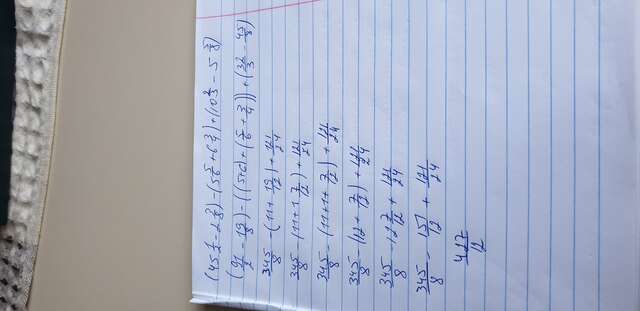 (45 1/2 - 2 3/8) - (5 5/6 + 6 3/4) + (10 2/3 - 5 5/8)
(91/2 - 19/8) - ((5+6) + (5/6 + 3/4)) + (32/3 - 45/8)
345/8 - (11 + 19/12) + 121/24
345/8 - (11 + 1 7/12) + 121/24
345/8 - (11 + 1 + 7/12) + 121/24
345/8 - (12 + 7/12) + 121/24
345/8 - 12 7/12 + 121/24
345/8 - 151/12 + 121/24
427/12